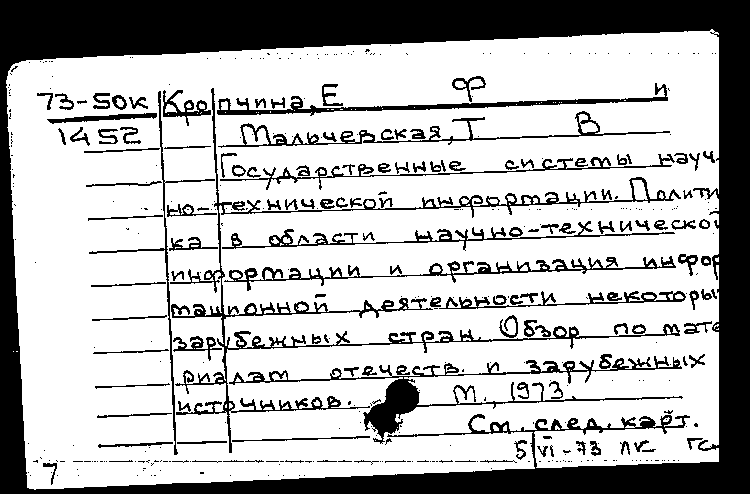 73-50к Кропчина, Е Ф и
1452 Мальчевская, Т В
Государственные системы науч-
но-технической информации. Полити
ка в области научно-технической
информации и организация инфор
мационной деятельности некоторы
зарубежных стран. Обзор по мате
риалам отечеств. и зарубежных
источников. М., 1973.
См. след. карт.
5/VI-73 ЛК
7